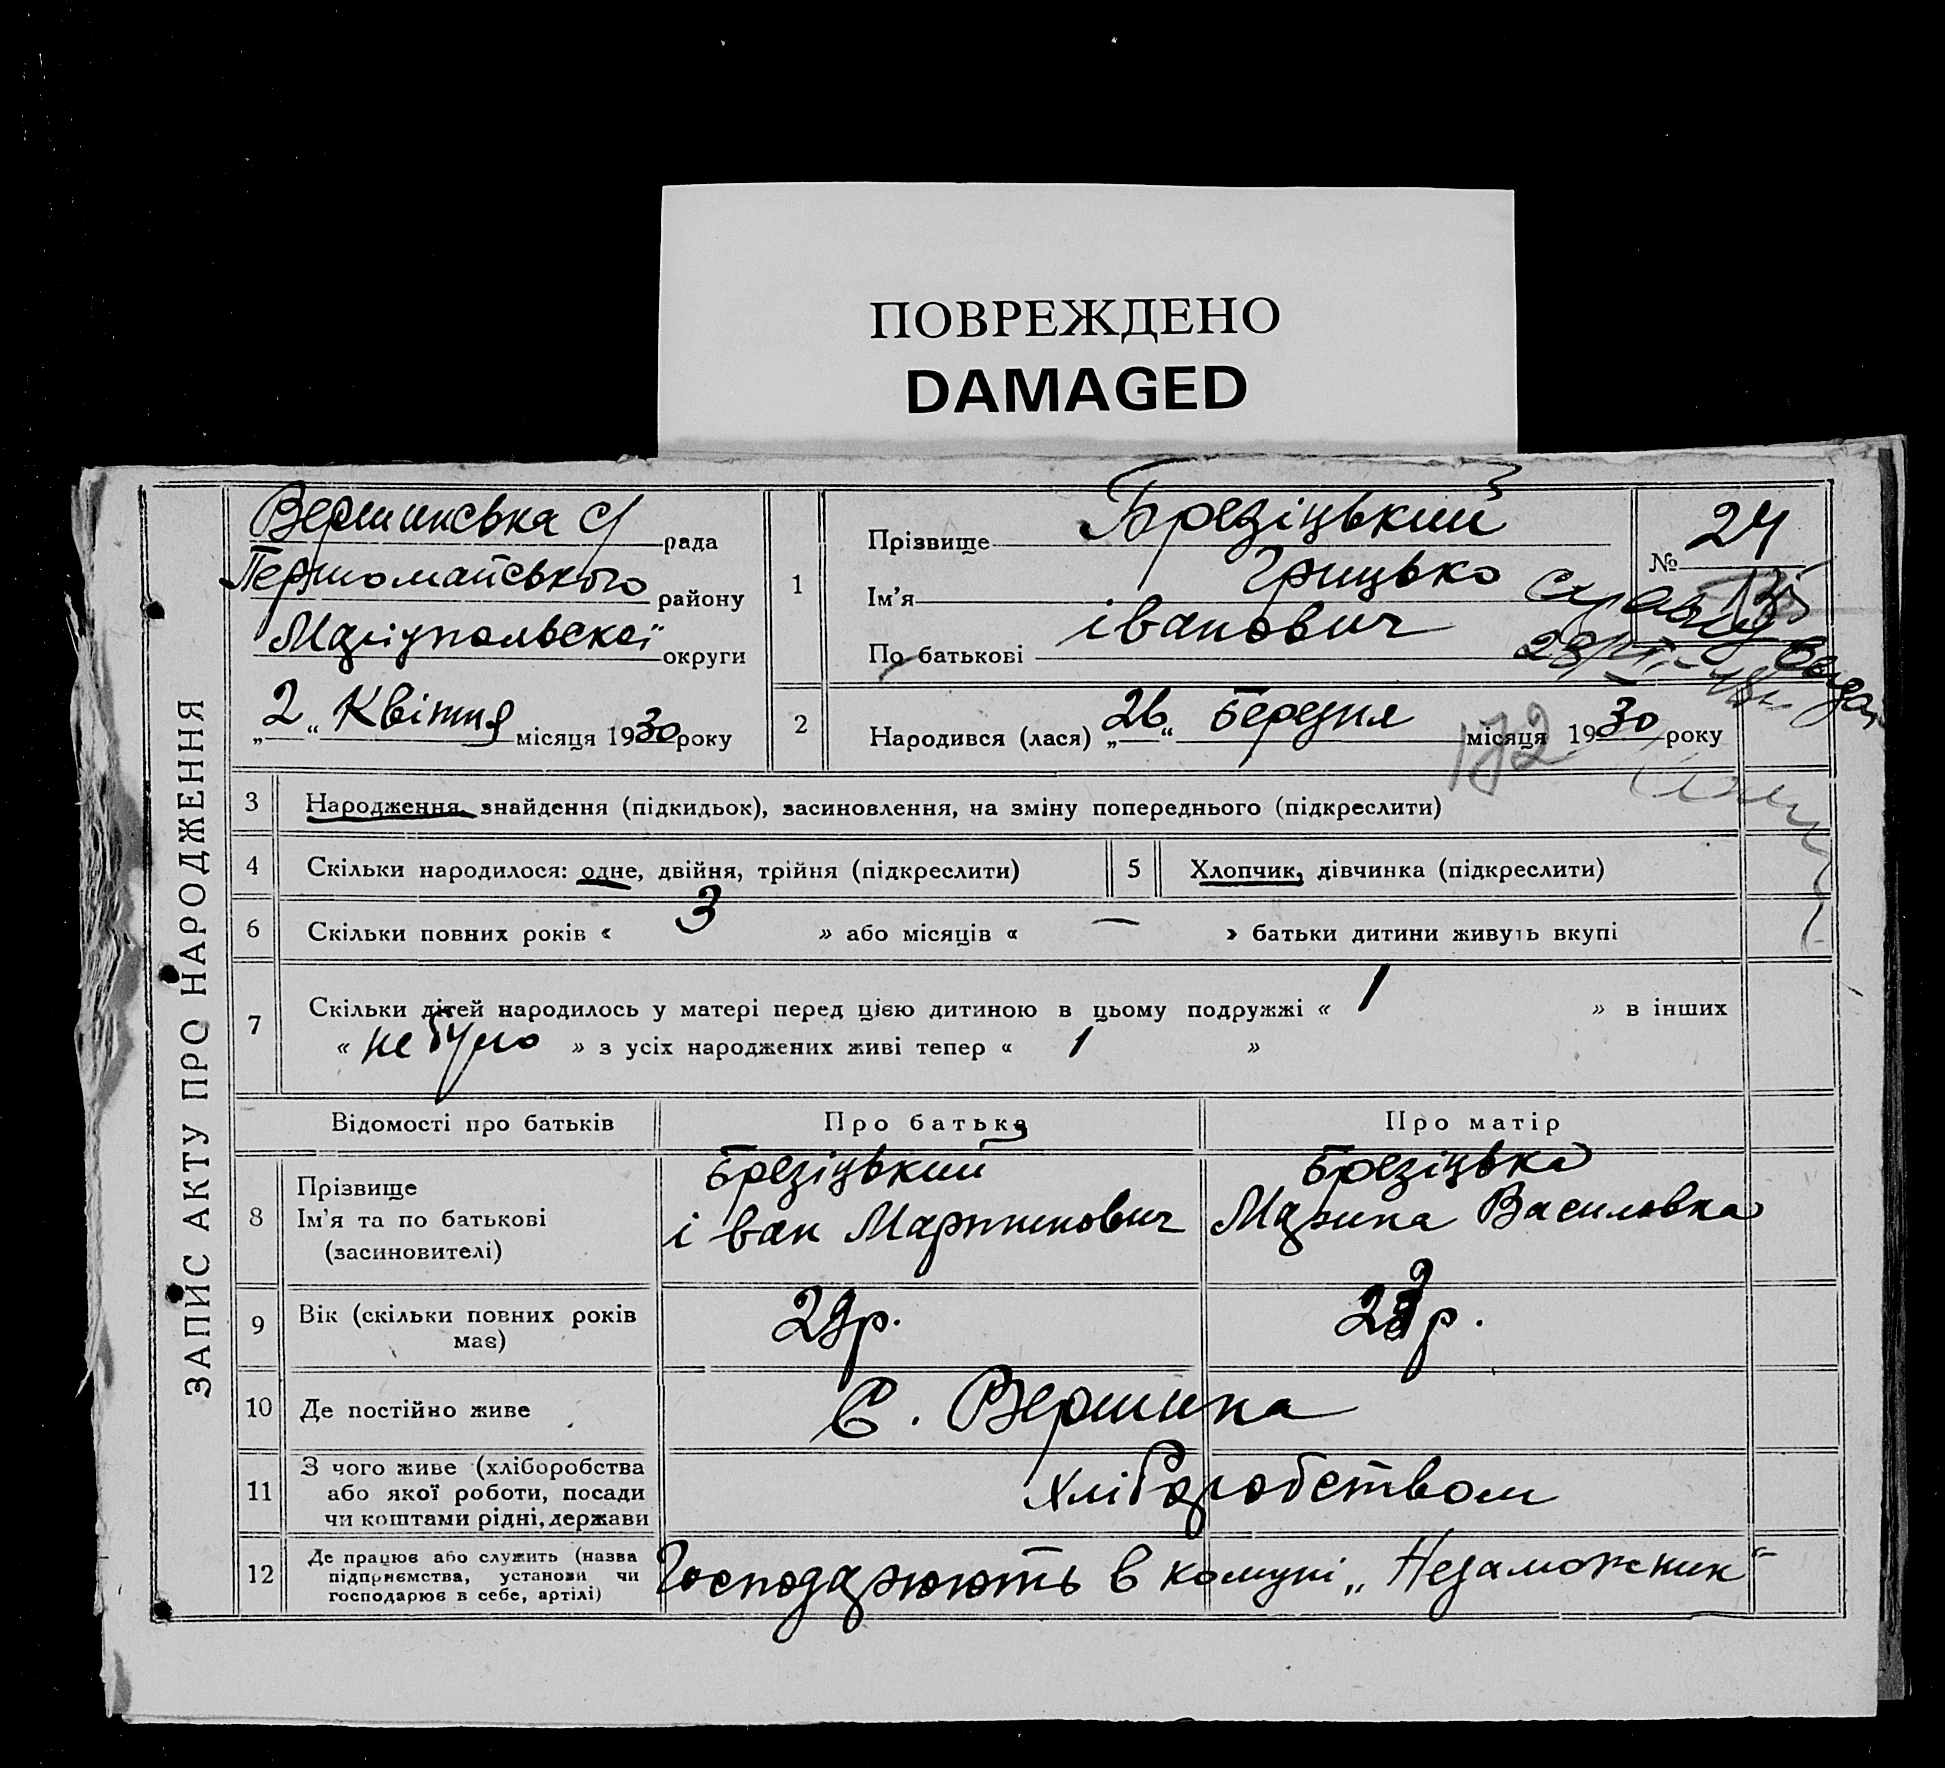 ПОВРЕЖДЕНО
DAMAGED
ЗАПИС АКТУ ПРО НАРОДЖЕННЯ
Вершинська с/ рада
Першомайського району
Маріупольської округи
„2“ Квітня місяця 1930 року
1
Прізвище Брезіцький
Ім’я Грицько
По батькові іванович
№ 24
2
Народився (лася) „26“ Березня місяця 1930 року
172
3 Народження, знайдення (підкидьок), засиновлення, на зміну попереднього (підкреслити)
4 Скільки народилося: одне, двійня, трійня (підкреслити)
5 Хлопчик, дівчинка (підкреслити)
6 Скільки повних років « 3 » або місяців « — » батьки дитини живуть вкупі
7 Скільки дітей народилось у матері перед цією дитиною в цьому подружжі « 1 » в інших
« не було » з усіх народжених живі тепер « 1 »
Відомості про батьків Про батька Про матір
8
Прізвище
Ім’я та по батькові
(засиновителі)
Брезіцький
іван Мартинович
Брезіцька
Марина Василовка
9
Вік (скільки повних років
має)
29 р.
р.
10 Де постійно живе
С. Вершина
11
З чого живе (хліборобства
або якої роботи, посади
чи коштами рідні, держави
хліборобством
12
Де працює або служить (назва
підприємства, установи чи
господарює в себе, артілі)
Господарюють в комуні „Незаможник“